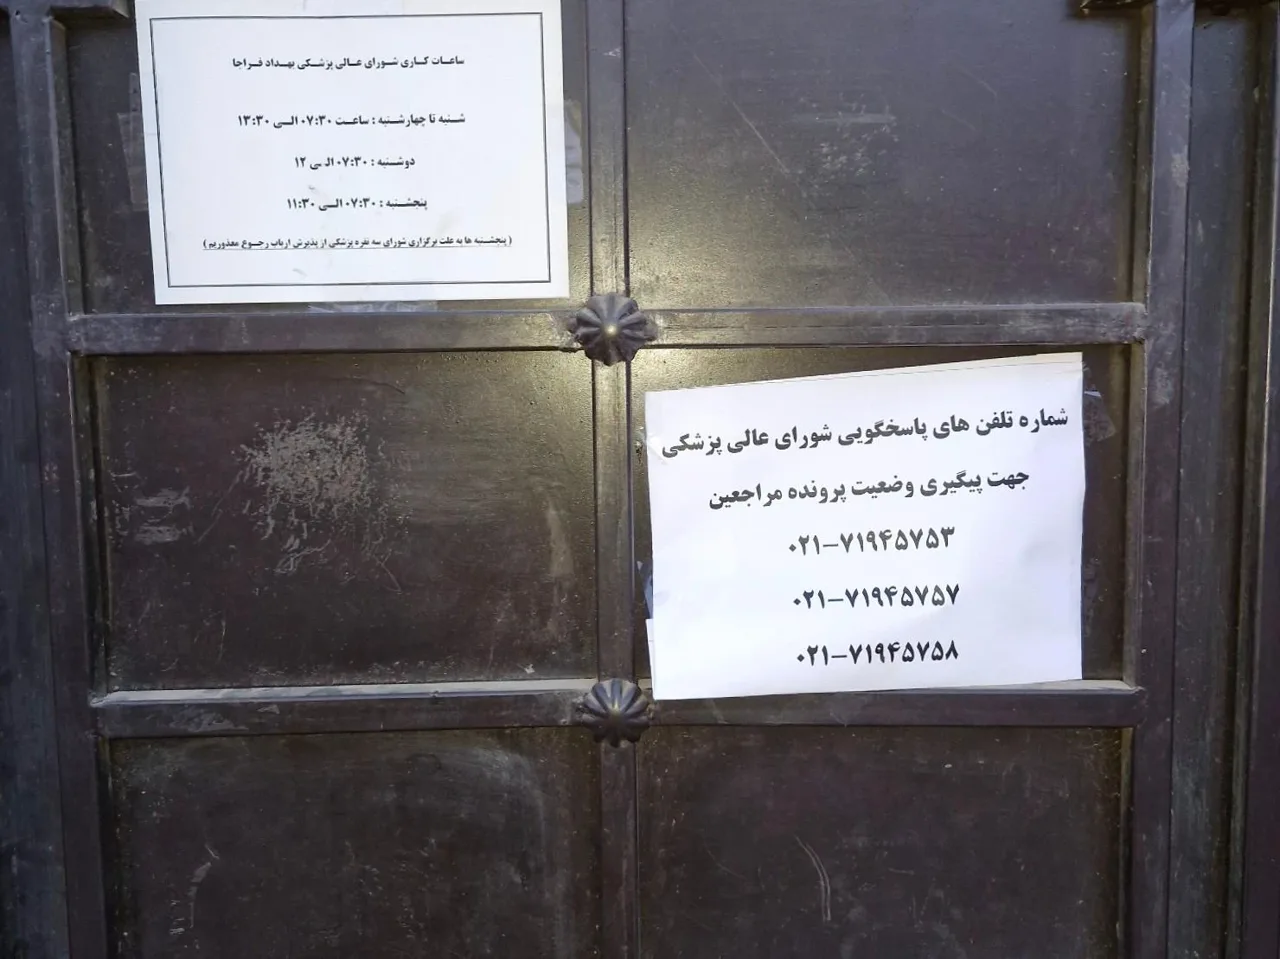 ساعات کاری شورای عالی پزشکی بهداد فراجا
شنبه تا چهارشنبه : ساعت ۰۷:۳۰ الی ۱۳:۳۰
دوشنبه : ۰۷:۳۰ الی ۱۲
پنجشنبه : ۰۷:۳۰ الی ۱۱:۳۰
( پنجشنبه ها به علت برگزاری شورای سه نفره پزشکی از پذیرش ارباب رجوع معذوریم )
شماره تلفن های پاسخگویی شورای عالی پزشکی
جهت پیگیری وضعیت پرونده مراجعین
۰۲۱-۷۱۹۴۵۷۵۳
۰۲۱-۷۱۹۴۵۷۵۷
۰۲۱-۷۱۹۴۵۷۵۸